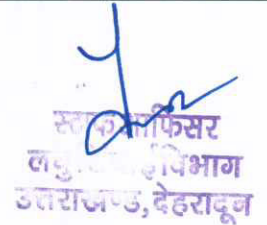 स्टाफ आफिसर
लघु सिंचाई विभाग
उत्तराखण्ड, देहरादून